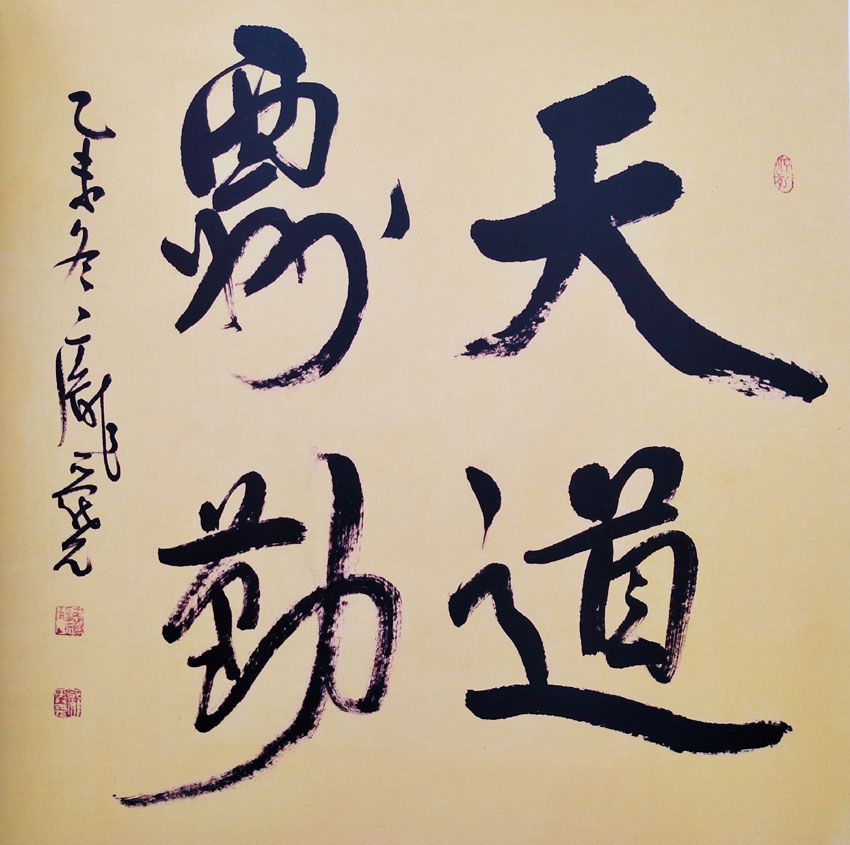 天道
酬勤
乙未冬